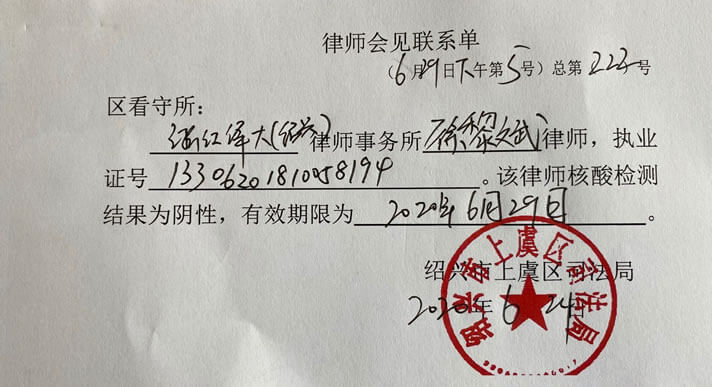 律师会见联系单
(6月29日下午第5号)总第222号
区看守所:
浙江泽大(绍兴)律师事务所徐黎文武律师,执业
证号13306201810058194。该律师核酸检测
结果为阴性,有效期限为2020年6月29日。
绍兴市上虞区司法局
2020年6月24日
绍兴市上虞区司法局